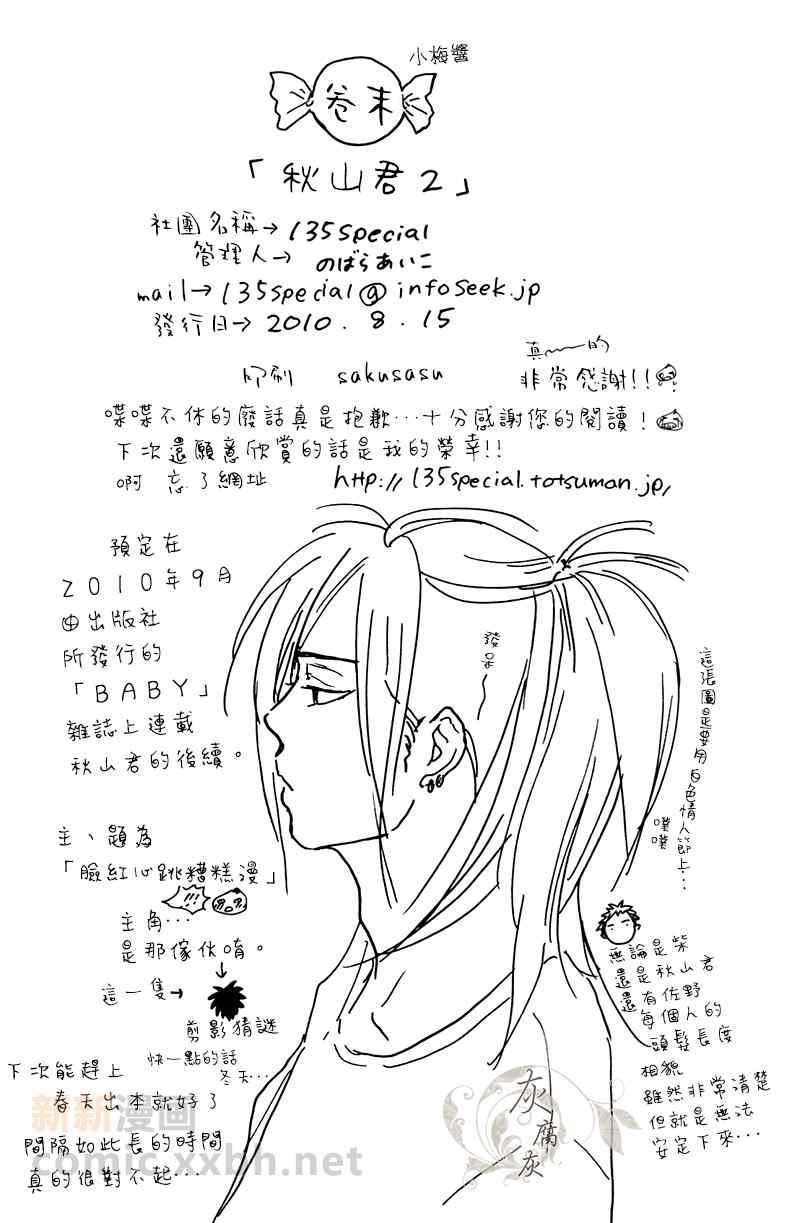 小梅醬
卷末
「秋山君2」
社團名稱→135special
管理人→のばらあいこ
mail→135special@infoseek.jp
發行日→2010.8.15
印刷 sakusasu
真～～的
非常感謝!!
喋喋不休的廢話真是抱歉…十分感謝您的閱讀!
下次還願意欣賞的話是我的榮幸!!
啊 忘了網址 http://135special.totsuman.jp/
預定在
2010年9月
由出版社
所發行的
「BABY」
雜誌上連載
秋山君的後續。
發呆～
這張圖是要用白色情人節上…
噗噗
主、題為
「臉紅心跳糟糕漫」
主角…
是那傢伙唷。
這一隻→
剪影猜謎
快一點的話
冬天…
下次能趕上
春天出本就好了
間隔如此長的時間
真的很對不起…
無論是柴
還是秋山君
還有佐野
每個人的
頭髮長度
相貌
雖然非常清楚
但就是無法
安定下來…
灰腐灰
新新漫画
comic.xxbh.net